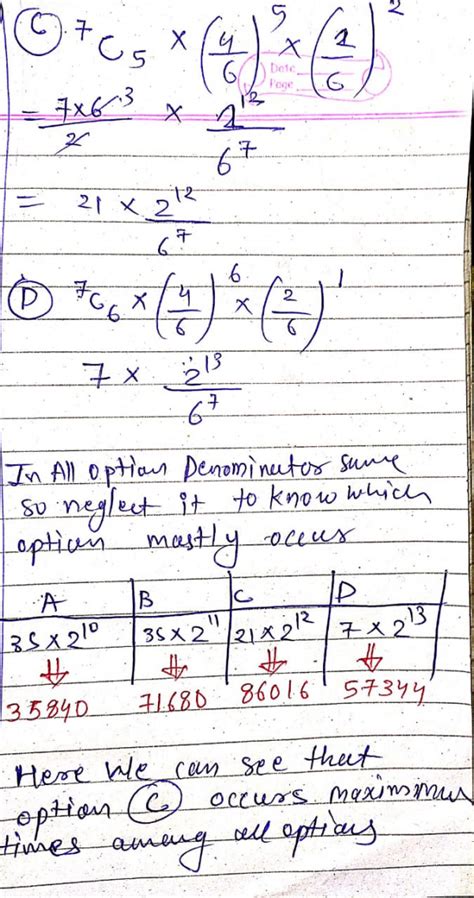 (C) ⁷C₅ × (4/6)⁵ × (2/6)²
Date
Page
= 7×6 3/2 × 2¹²/6⁷
= 21 × 2¹²/6⁷
(D) ⁷C₆ × (4/6)⁶ × (2/6)¹
7 × 2¹³/6⁷
In All option Denominator same
so neglect it to know which
option mostly occurs
A B C D
35×2¹⁰ 35×2¹¹ 21×2¹² 7×2¹³
⇓ ⇓ ⇓ ⇓
35840 71680 86016 57344
Here We can see that
option (C) occurs maximmum
times among all options